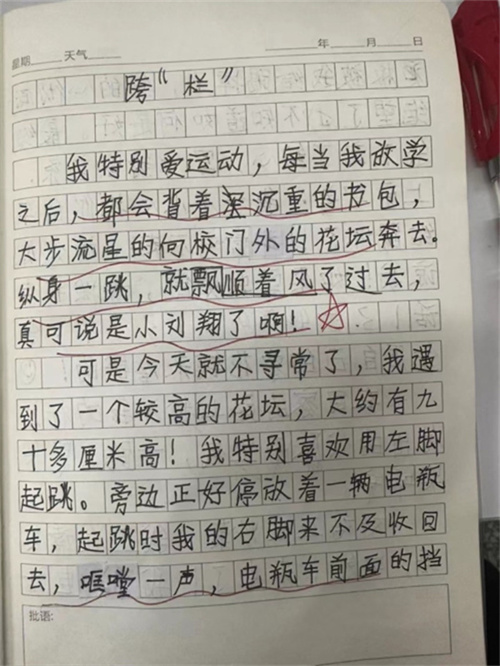 星期 天气 年 月 日
跨“栏”
我特别爱运动，每当我放学
之后，都会背着沉重的书包，
大步流星的向校门外的花坛奔去。
纵身一跳，就飘顺着风了过去，
真可说是小刘翔了啊！
可是今天就不寻常了，我遇
到了一个较高的花坛，大约有九
十多厘米高！我特别喜欢用左脚
起跳。旁边正好停放着一辆电瓶
车，起跳时我的右脚来不及收回
去，哐嘡一声，电瓶车前面的挡
批语: